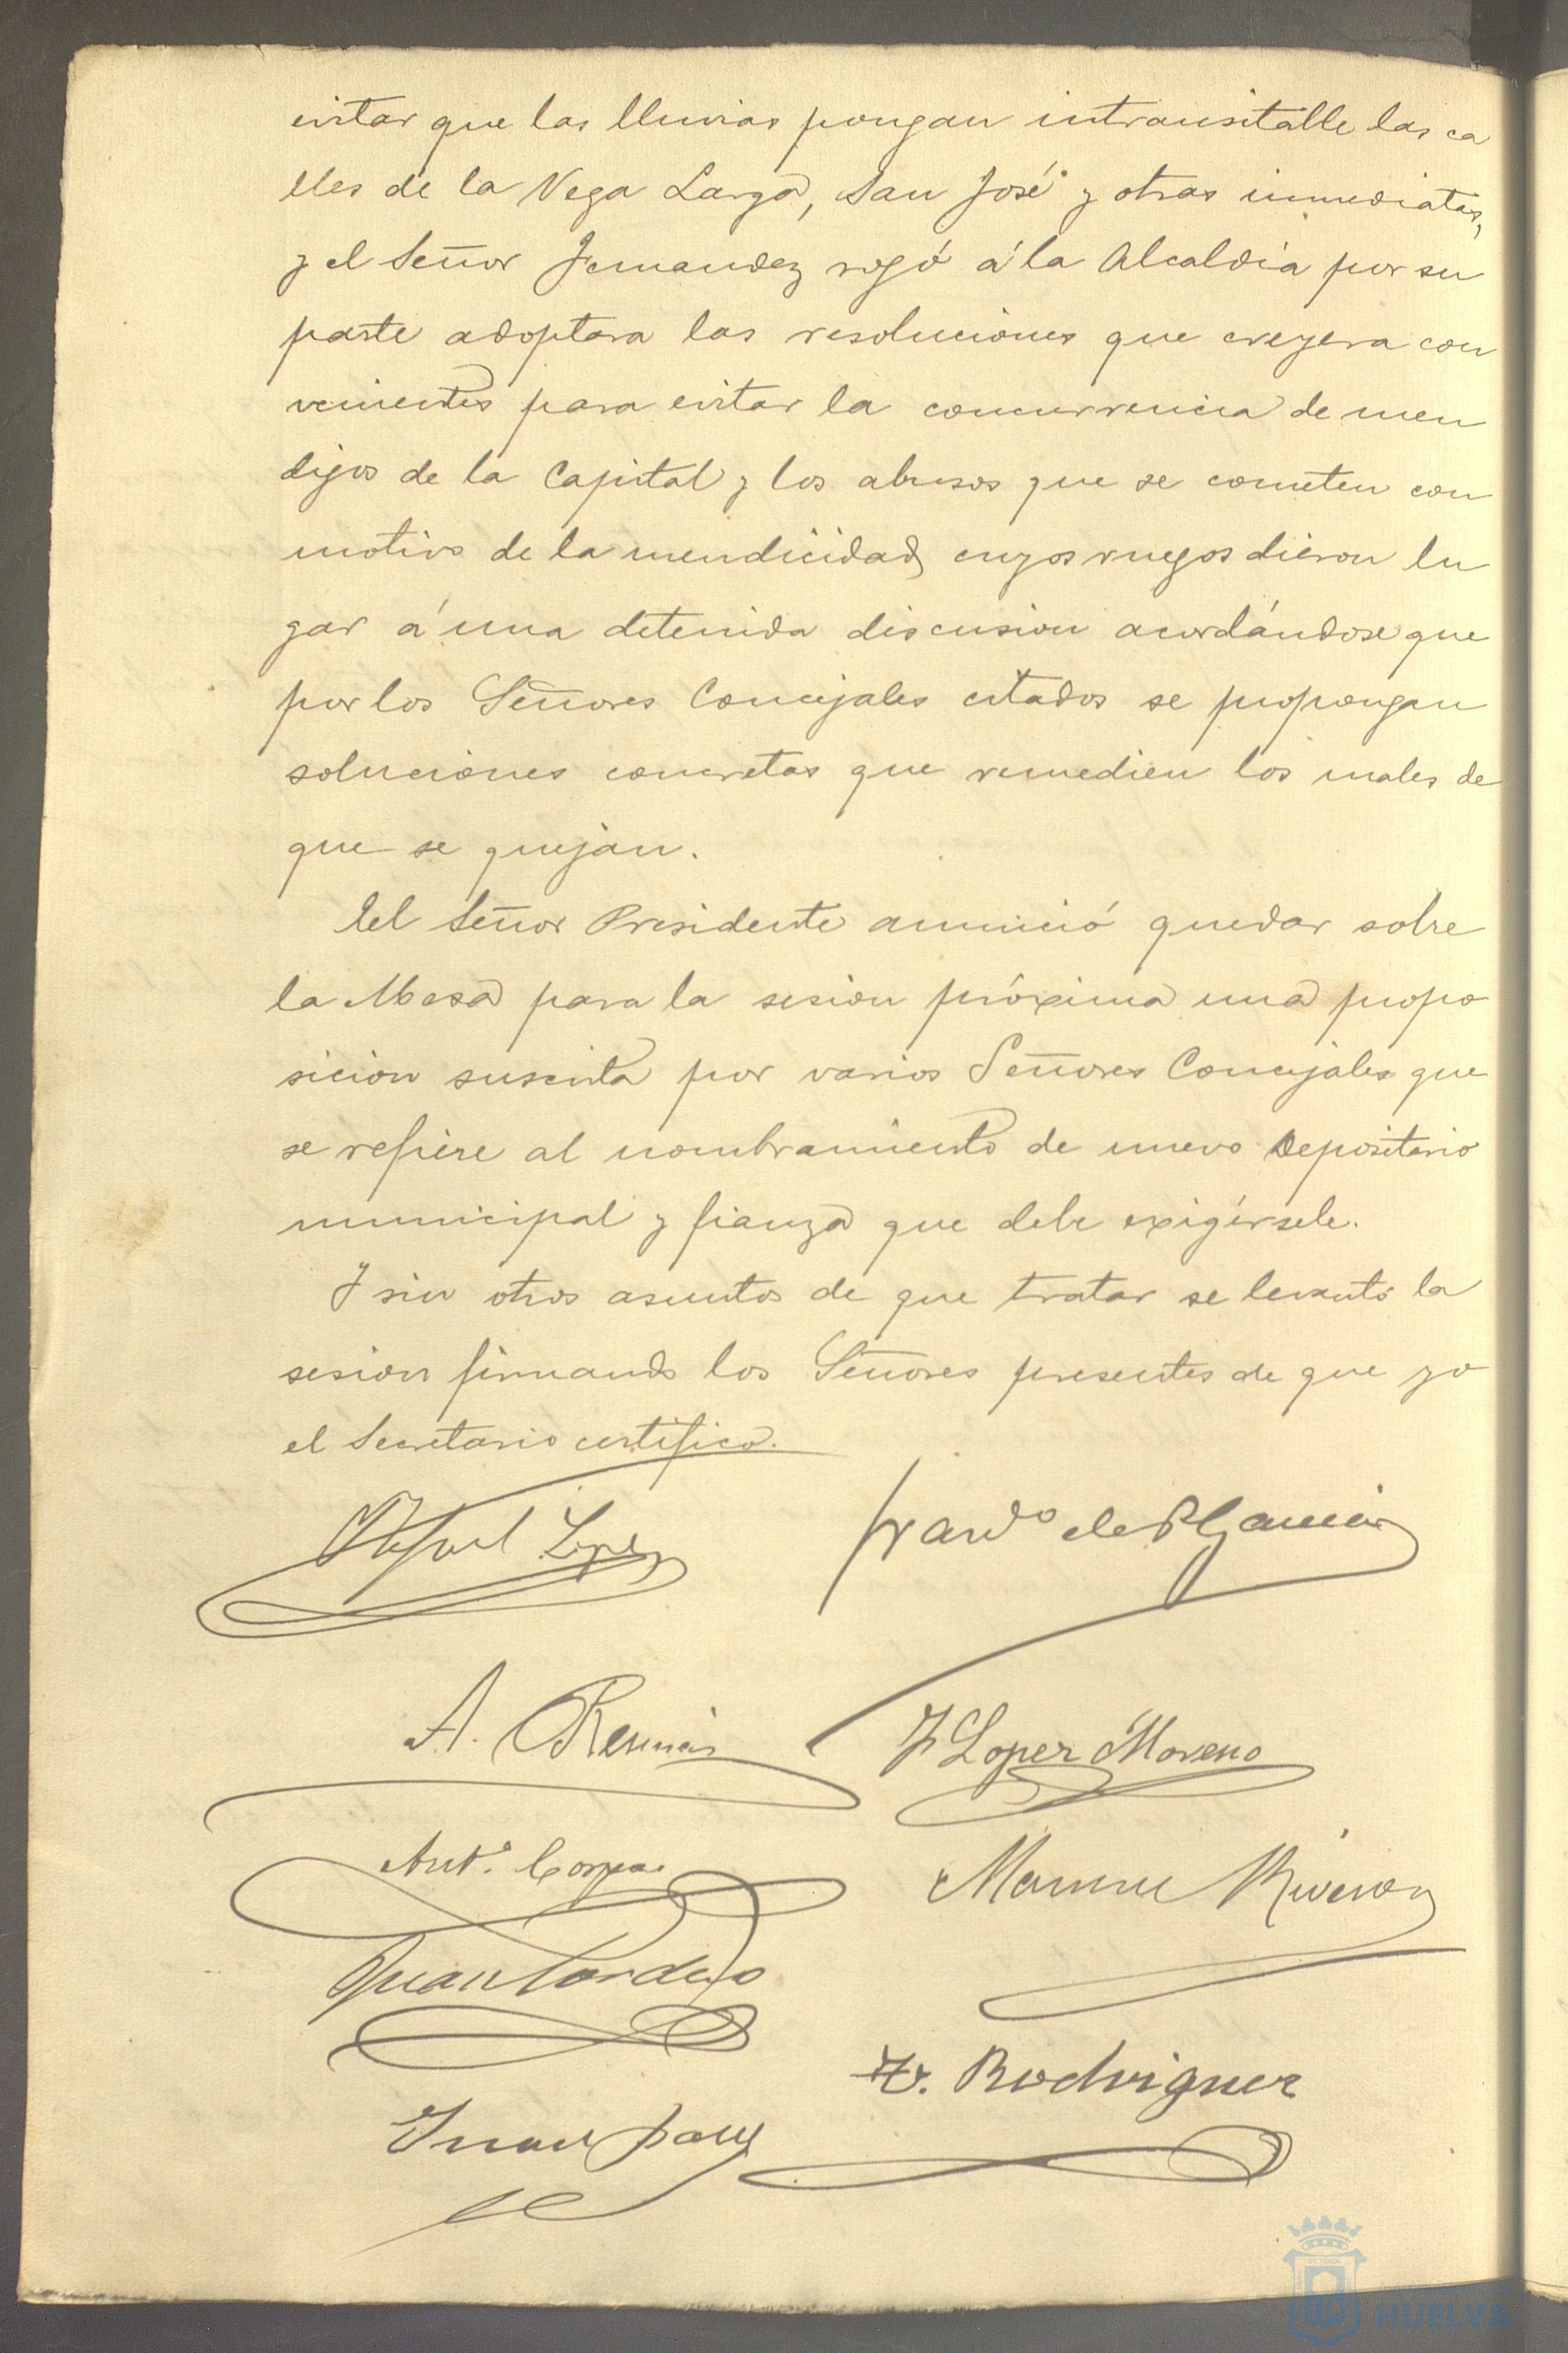 evitar que las lluvias pongan intransitable las ca
lles de la Vega Larga, San José y otras inmediatas,
y el Señor Fernandez rogó á la Alcaldía por su
parte adoptara las resoluciones que creyera con
venientes para evitar la concurrencia de men
digos de la Capital y los abusos que se cometen con
motivo de la mendicidad, cuyos ruegos dieron lu
gar á una detenida discusion acordándose que
por los Señores Concejales citados se propongan
soluciones concretas que remedien los males de
que se quejan.
El Señor Presidente anunció quedar sobre
la Mesa para la sesion próxima una propo
sicion suscrita por varios Señores Concejales que
se refiere al nombramiento de nuevo Depositario
municipal y fianza que debe exigírsele.
Y sin otros asuntos de que tratar se levantó la
sesion firmando los Señores presentes de que yo
el Secretario certifico.
Lopez
de P Garcia
A.
F Lopez Moreno
Ant.º Corpas
Juan Cordero
F. Rodriguez
Juan
HUELVA